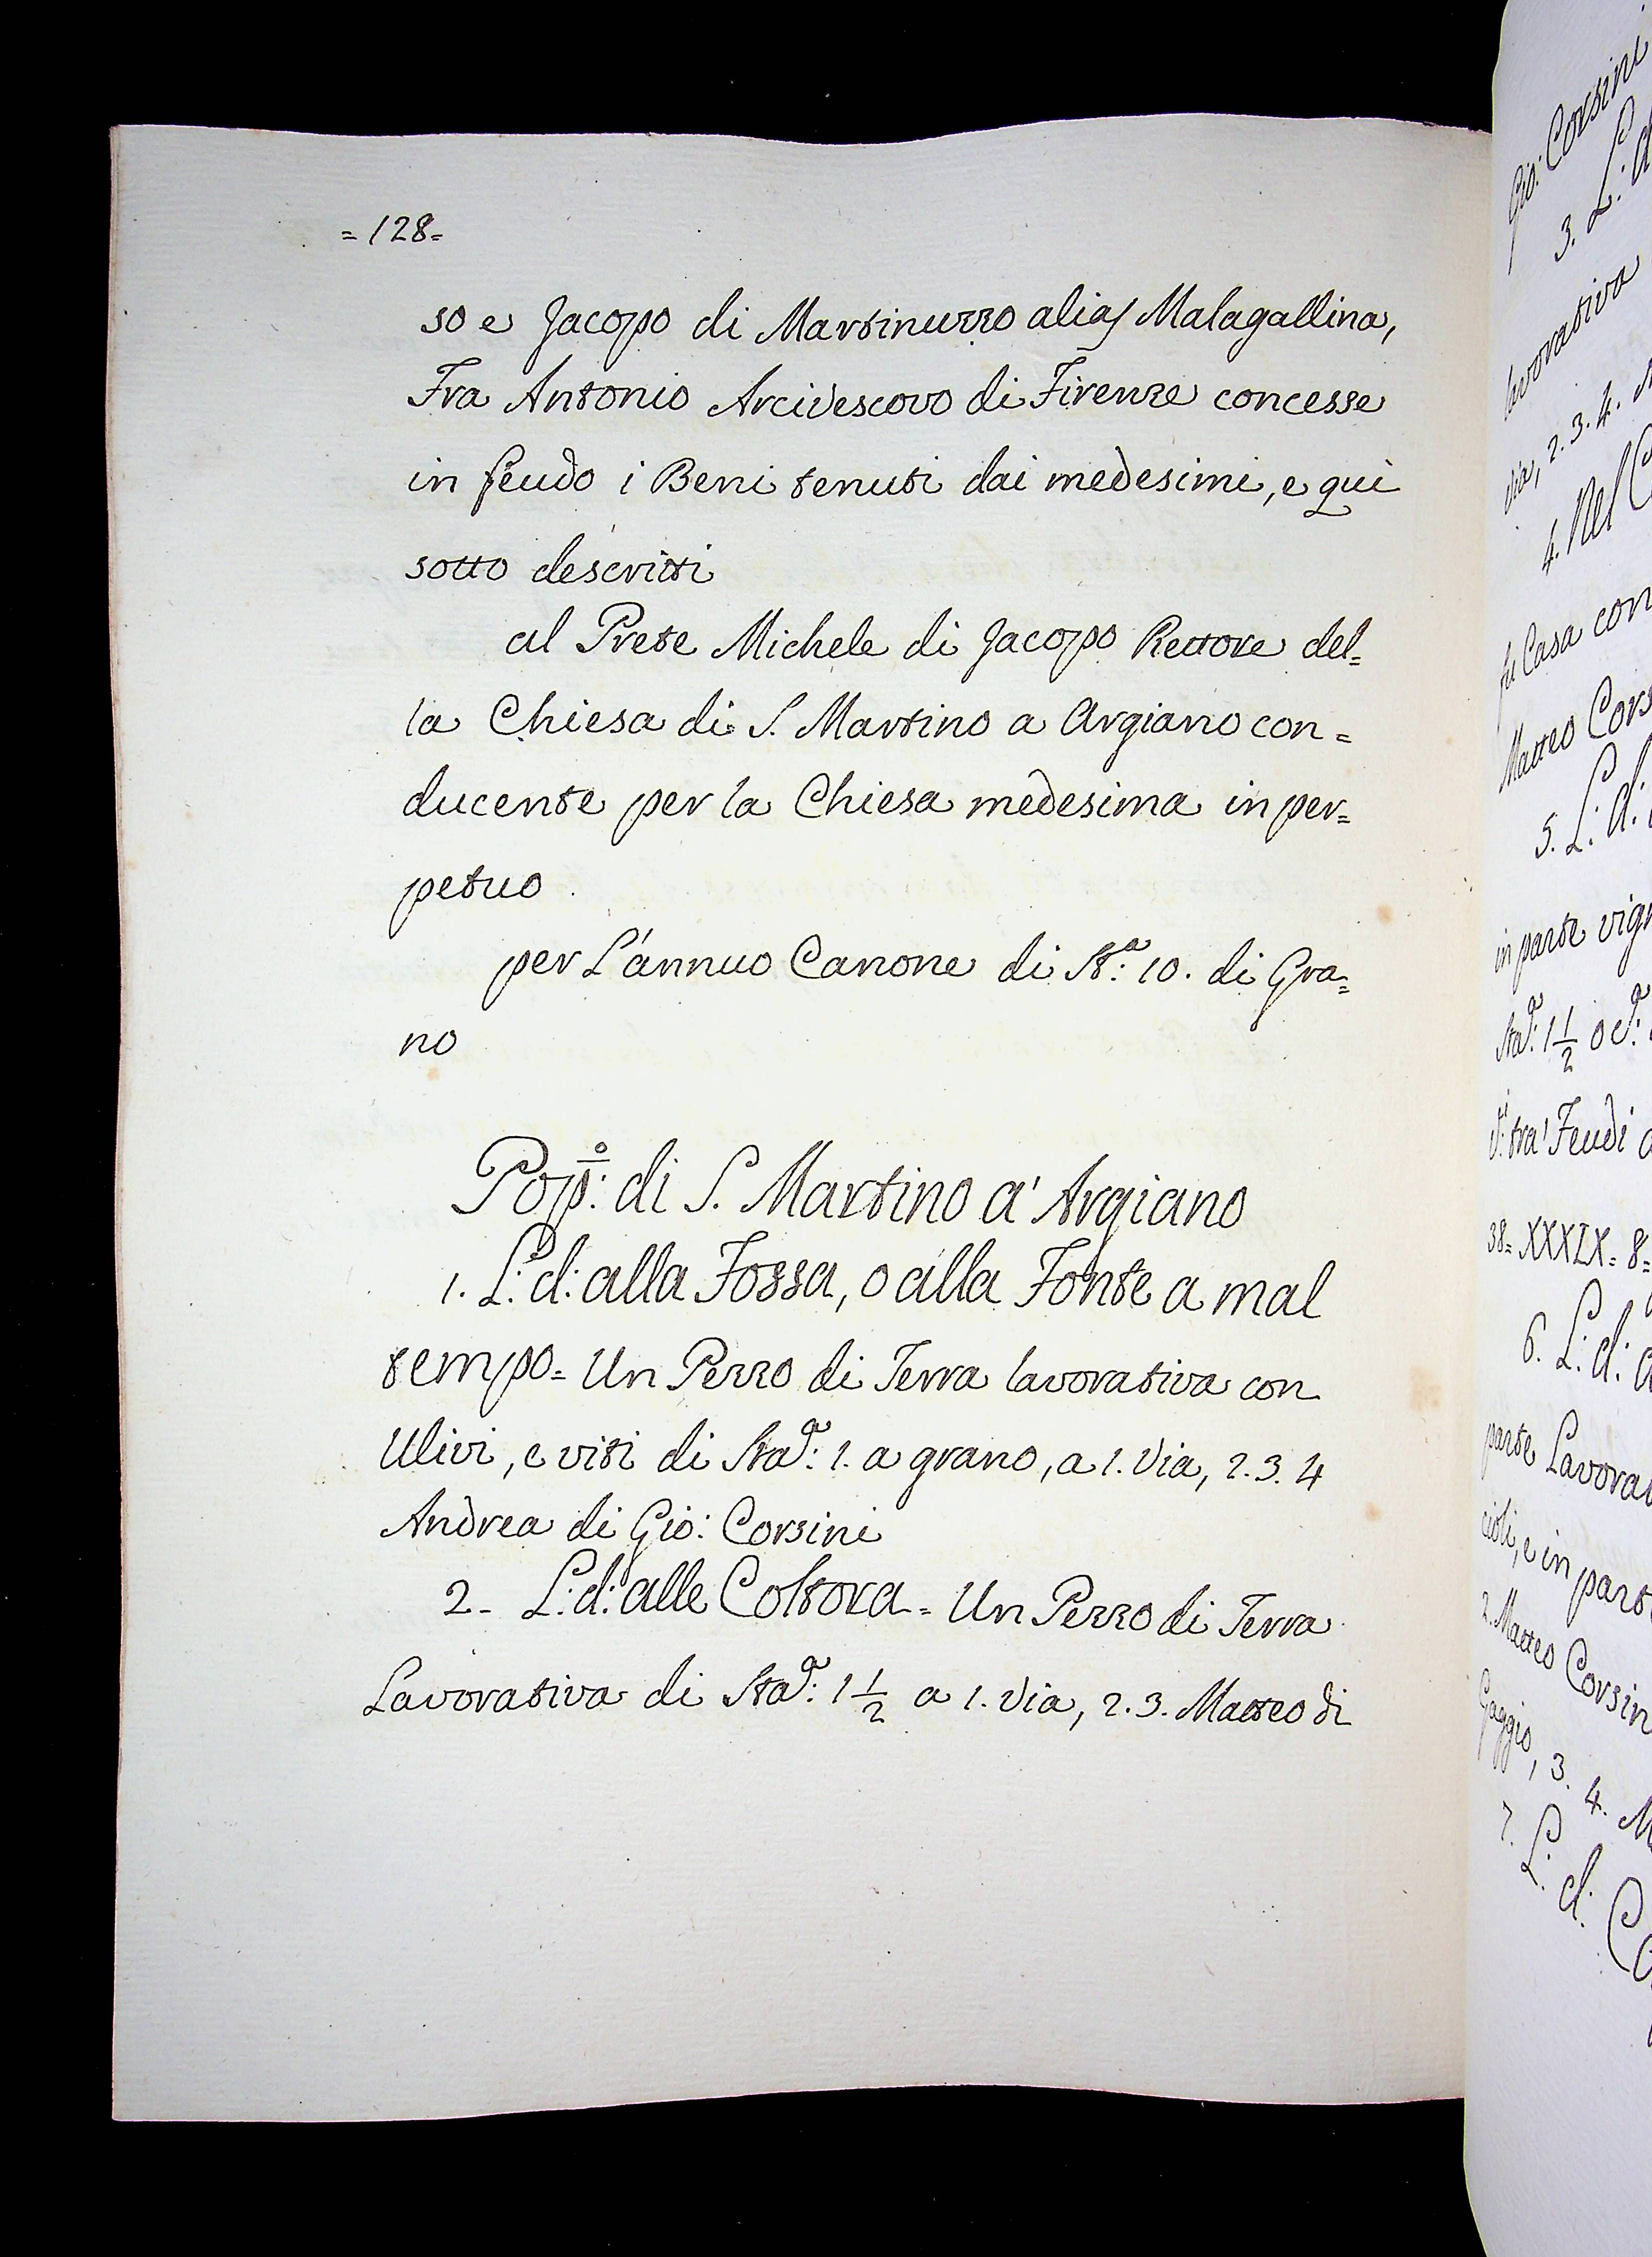 =128=
so e Jacopo di Martinuzzo alias Malagallina,
Fra Antonio Arcivescovo di Firenze concesse
in feudo i Beni tenuti dai medesimi, e qui
sotto descritti
al Prete Michele di Jacopo Rettore del=
la Chiesa di S. Martino a Argiano con=
ducente per la Chiesa medesima in per=
petuo.
per L'annuo Canone di St.ª: 10. di Gra=
no
Pop.º: di S. Martino a' Argiano
1. L: d: alla Fossa, o alla Fonte a mal
tempo= Un Pezzo di Terra lavorativa con
Ulivi, e viti di Sta.ª: 1. a grano, a 1. Via, 2. 3. 4
Andrea di Gio: Corsini
2- L: d: alle Coltora= Un Pezzo di Terra
Lavorativa di Sta.ª: 1 1/2 a 1. Via, 2. 3. Matteo di
Gio: Corsini
3. L: d
lavorativa
via, 2. 3. 4.
4. Nel
fu Casa con
Matteo Cors
5. L: d:
in parte vign
Sta.ª: 1 1/2 o
tra' Feudi
38= XXXIX= 8=
6. L: d:
parte Lavorat
cioli, e in part
2. Matteo Corsin
Gaggio, 3. 4. M
7. L: d: Co